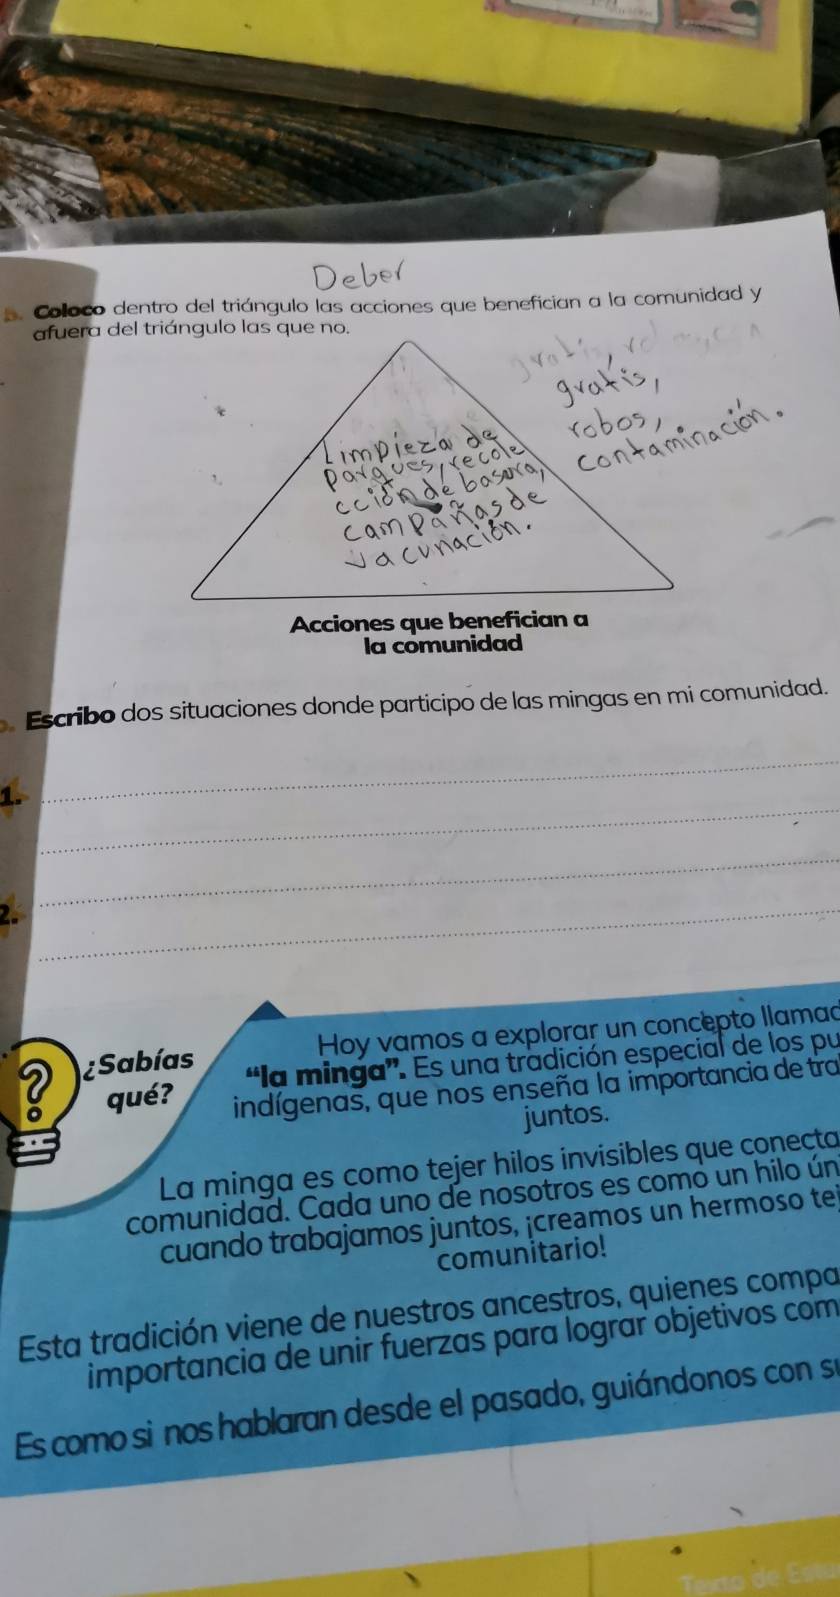 Deber
b. Coloco dentro del triángulo las acciones que benefician a la comunidad y
afuera del triángulo las que no.
gratis,
robos,
contaminación.
Limpieza de
parques, recole
cción de basura,
campañas de
vacunación.
Acciones que benefician a
la comunidad
Escribo dos situaciones donde participo de las mingas en mi comunidad.
1.
2.
¿Sabías
qué?
Hoy vamos a explorar un concepto llamad
“la minga”. Es una tradición especial de los pu
indígenas, que nos enseña la importancia de tra
juntos.
La minga es como tejer hilos invisibles que conecta
comunidad. Cada uno de nosotros es como un hilo ún
cuando trabajamos juntos, ¡creamos un hermoso tej
comunitario!
Esta tradición viene de nuestros ancestros, quienes compa
importancia de unir fuerzas para lograr objetivos com
Es como si nos hablaran desde el pasado, guiándonos con s
Texto de Estu